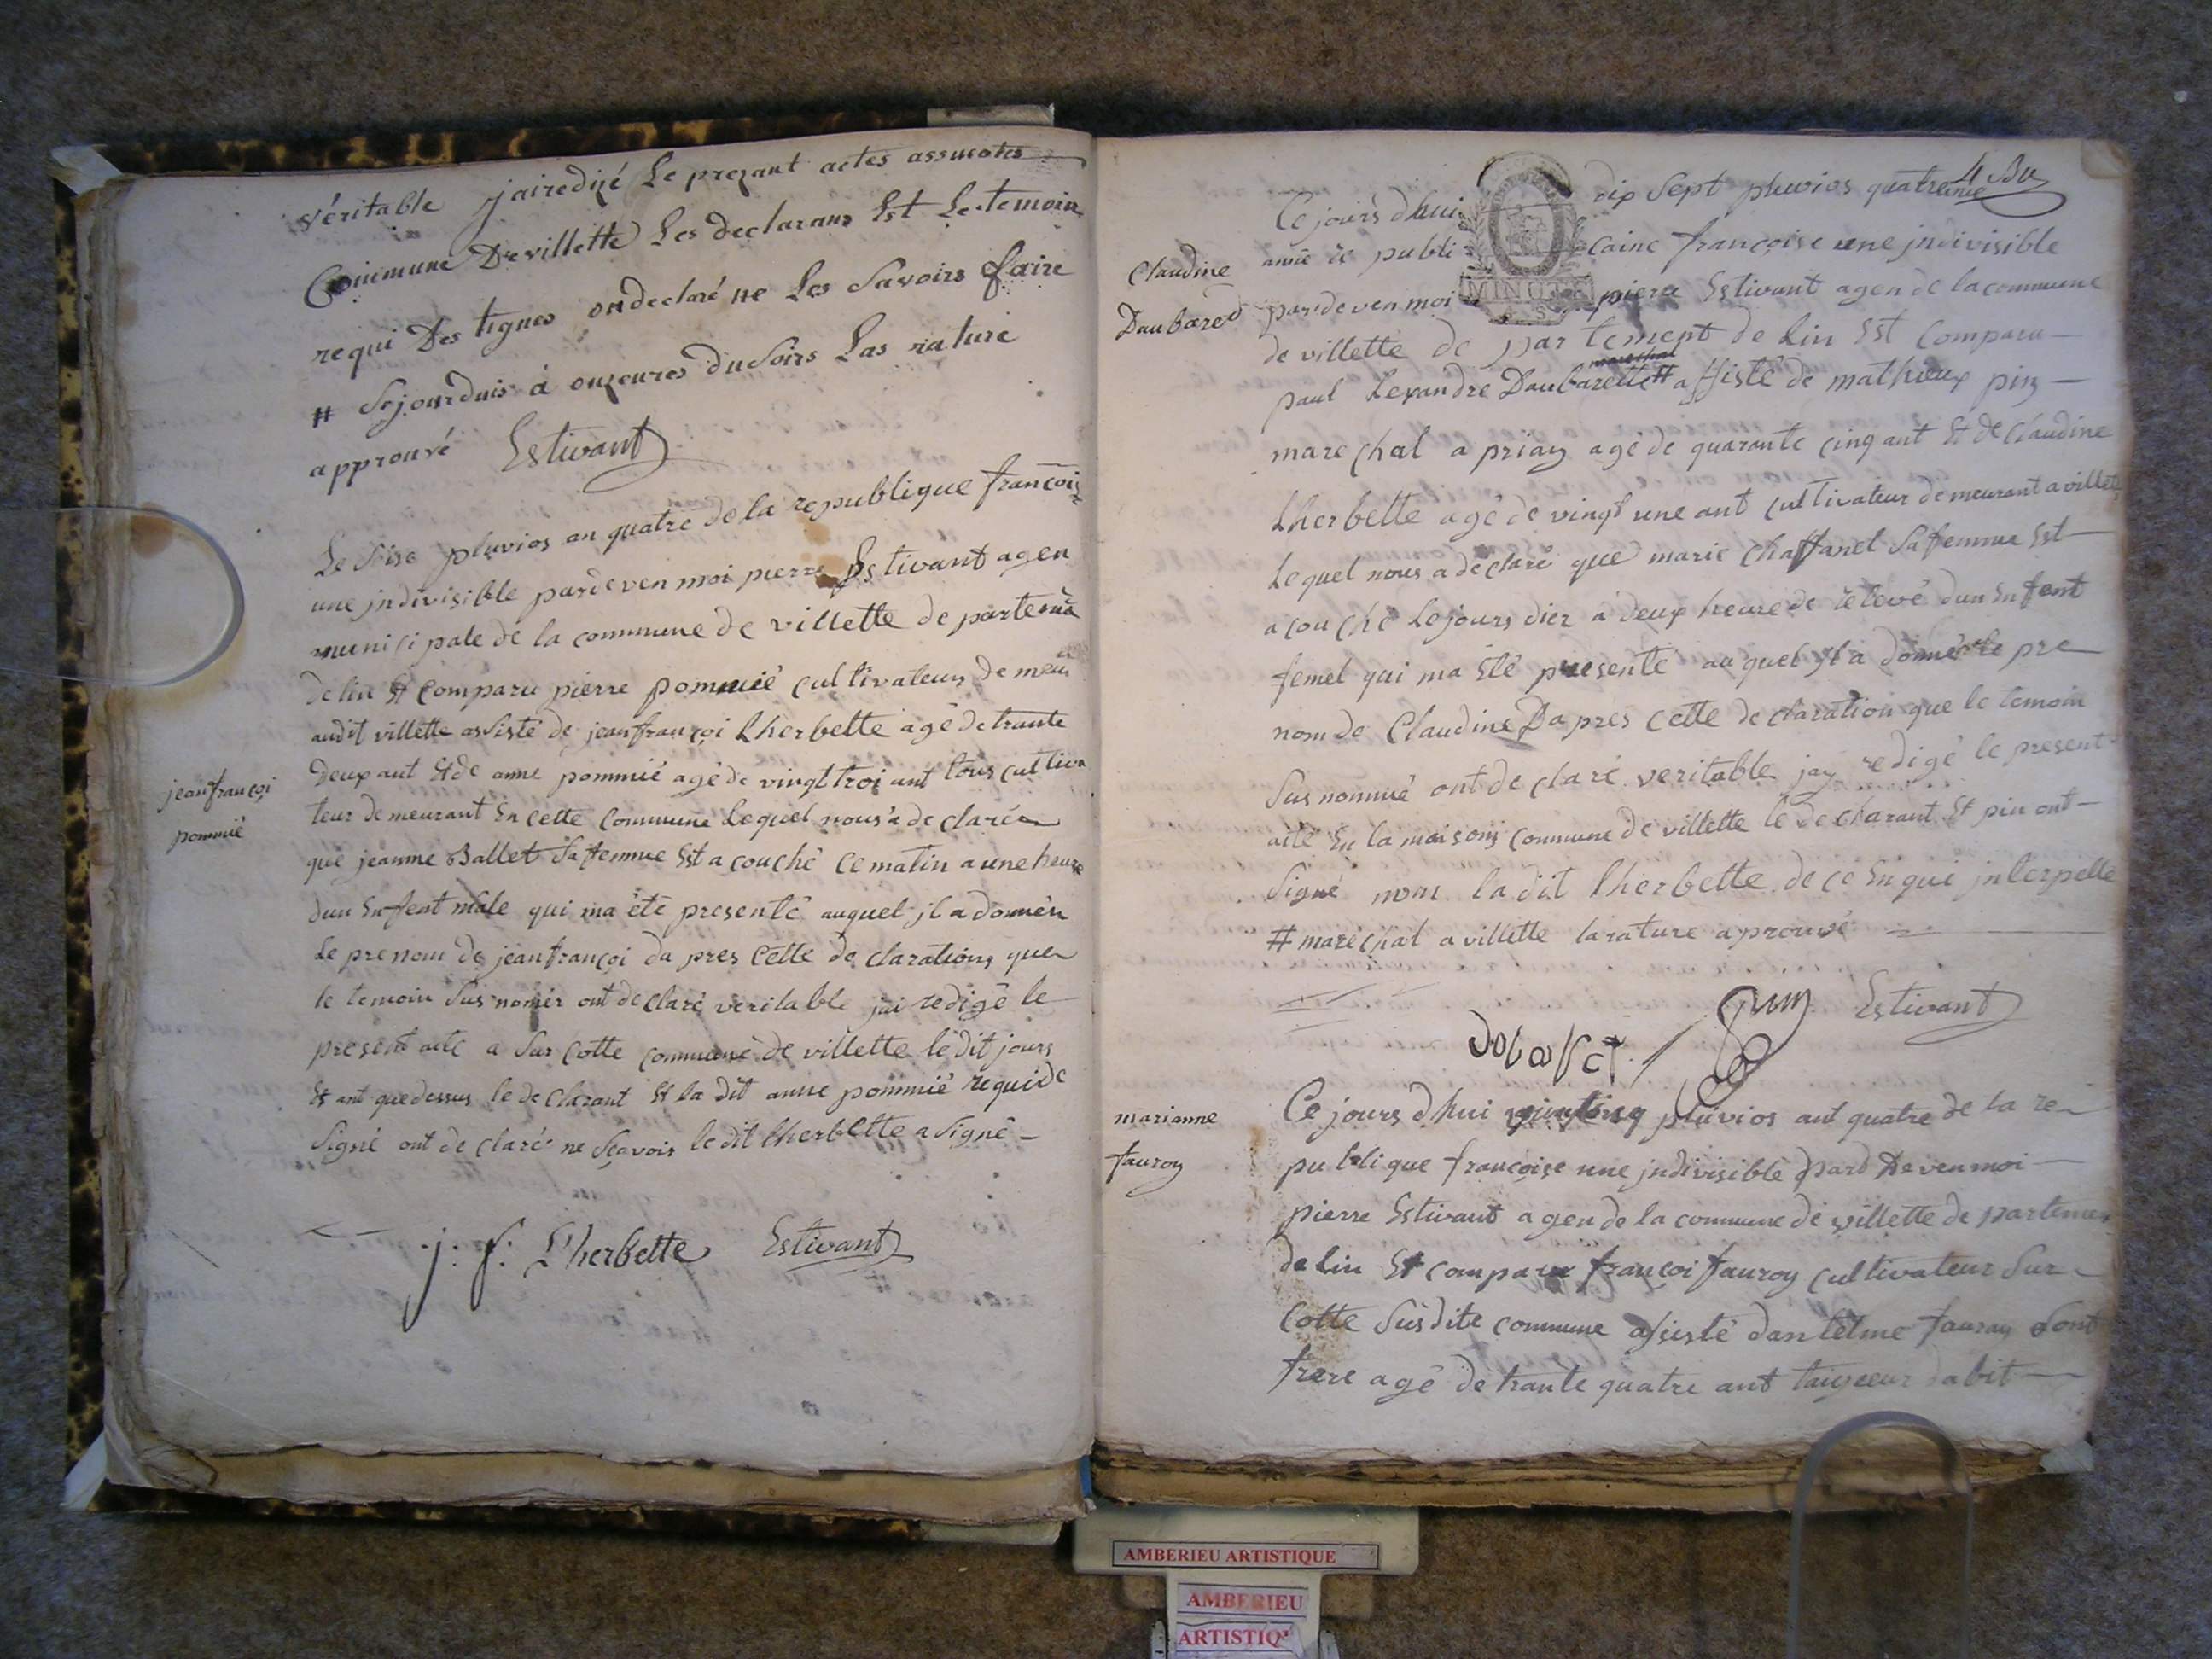 véritable jairedigé Le prezant actes assucotes
Commune De villette Les declarans Est Le temoin
requi Des tignes ondeclaré ne Les Savoirs faire
# Sejourduis à onzeures du Soirs Las rature
approuvé Estivant
Le Seise pluvios an quatre de la republique françois
une jndivisible pardeven moi pierre Estivant agen
municipale de la commune de villette de partemã
de lin Et comparu pierre pommié cultivateur de meur
audit villette assisté de jeanfrançoi Lherbette agé de trante
Jeanfrançoi
pommié
Deux ant Et de anne pommié agé de vingt troi ant tous cultiva
teur demeurant En cette Commune Lequel nous a declaré
que jeanne Ballet Sa femme Est a couché Ce matin a une heure
dun Enfent male qui ma été presenté auquel jl a donné
Le prenom de jeanfrançoi da pres Cette de clarations que
le temoin Sus nomér ont declaré veritable jai redigé le
present acte a Sur Cotte commune de villette le dit jours
Et ant quedessus le declarant Et la dit anne pommié requi de
Signé ont declaré ne Sçavois le dit Lherbette a Signé -
j: f: L'herbette Estivant
4 
Claudine
Daubared
Ce jours d'hui dix Sept pluvios quatreime
anné re publi caine françoise une jndivisible
MINUTE
pardeven moi piere Estivant agen de lacommune
de villette de partement de Lin Est Comparu
marechal
paul Lexandre Daubarette # assisté de mathieux pin
marechal a priay agé de quarante cinq ant Et de Claudine
Lherbette agé de vingt une ant cultivateur demeurant a villete
Lequel nous a declaré que marie Chaffanel Sa femme Est
a couché Lejours dier a deux heure de relevé dun Enfant
femel qui ma Eté presenté auquel jl a donné le pre
nom de Claudine Da pres Cette de claration que le temoin
Sus nommé ont declaré veritable jay redigé le present
acte En la maisons Commune de villette le declarant Et pin ont
Signé non la dit lherbette de ce Enqui jnterpelle
# maréchal a villette la rature aprouvé
pin Estivant
marianne
fauroy
Ce jours d'hui pluvios ant quatre de la re
publique françoise une jndivisible pard Deven moi
pierre Estivant agen de la commune de villette de partemen
de Lin Et comparu françoi fauroy cultivateur Sur
Cotte Susdite commune assisté dantelme fauroy Sont
frere agé de trante quatre ant taigeeur dabit
AMBERIEU ARTISTIQUE
AMBERIEU
ARTISTIQ